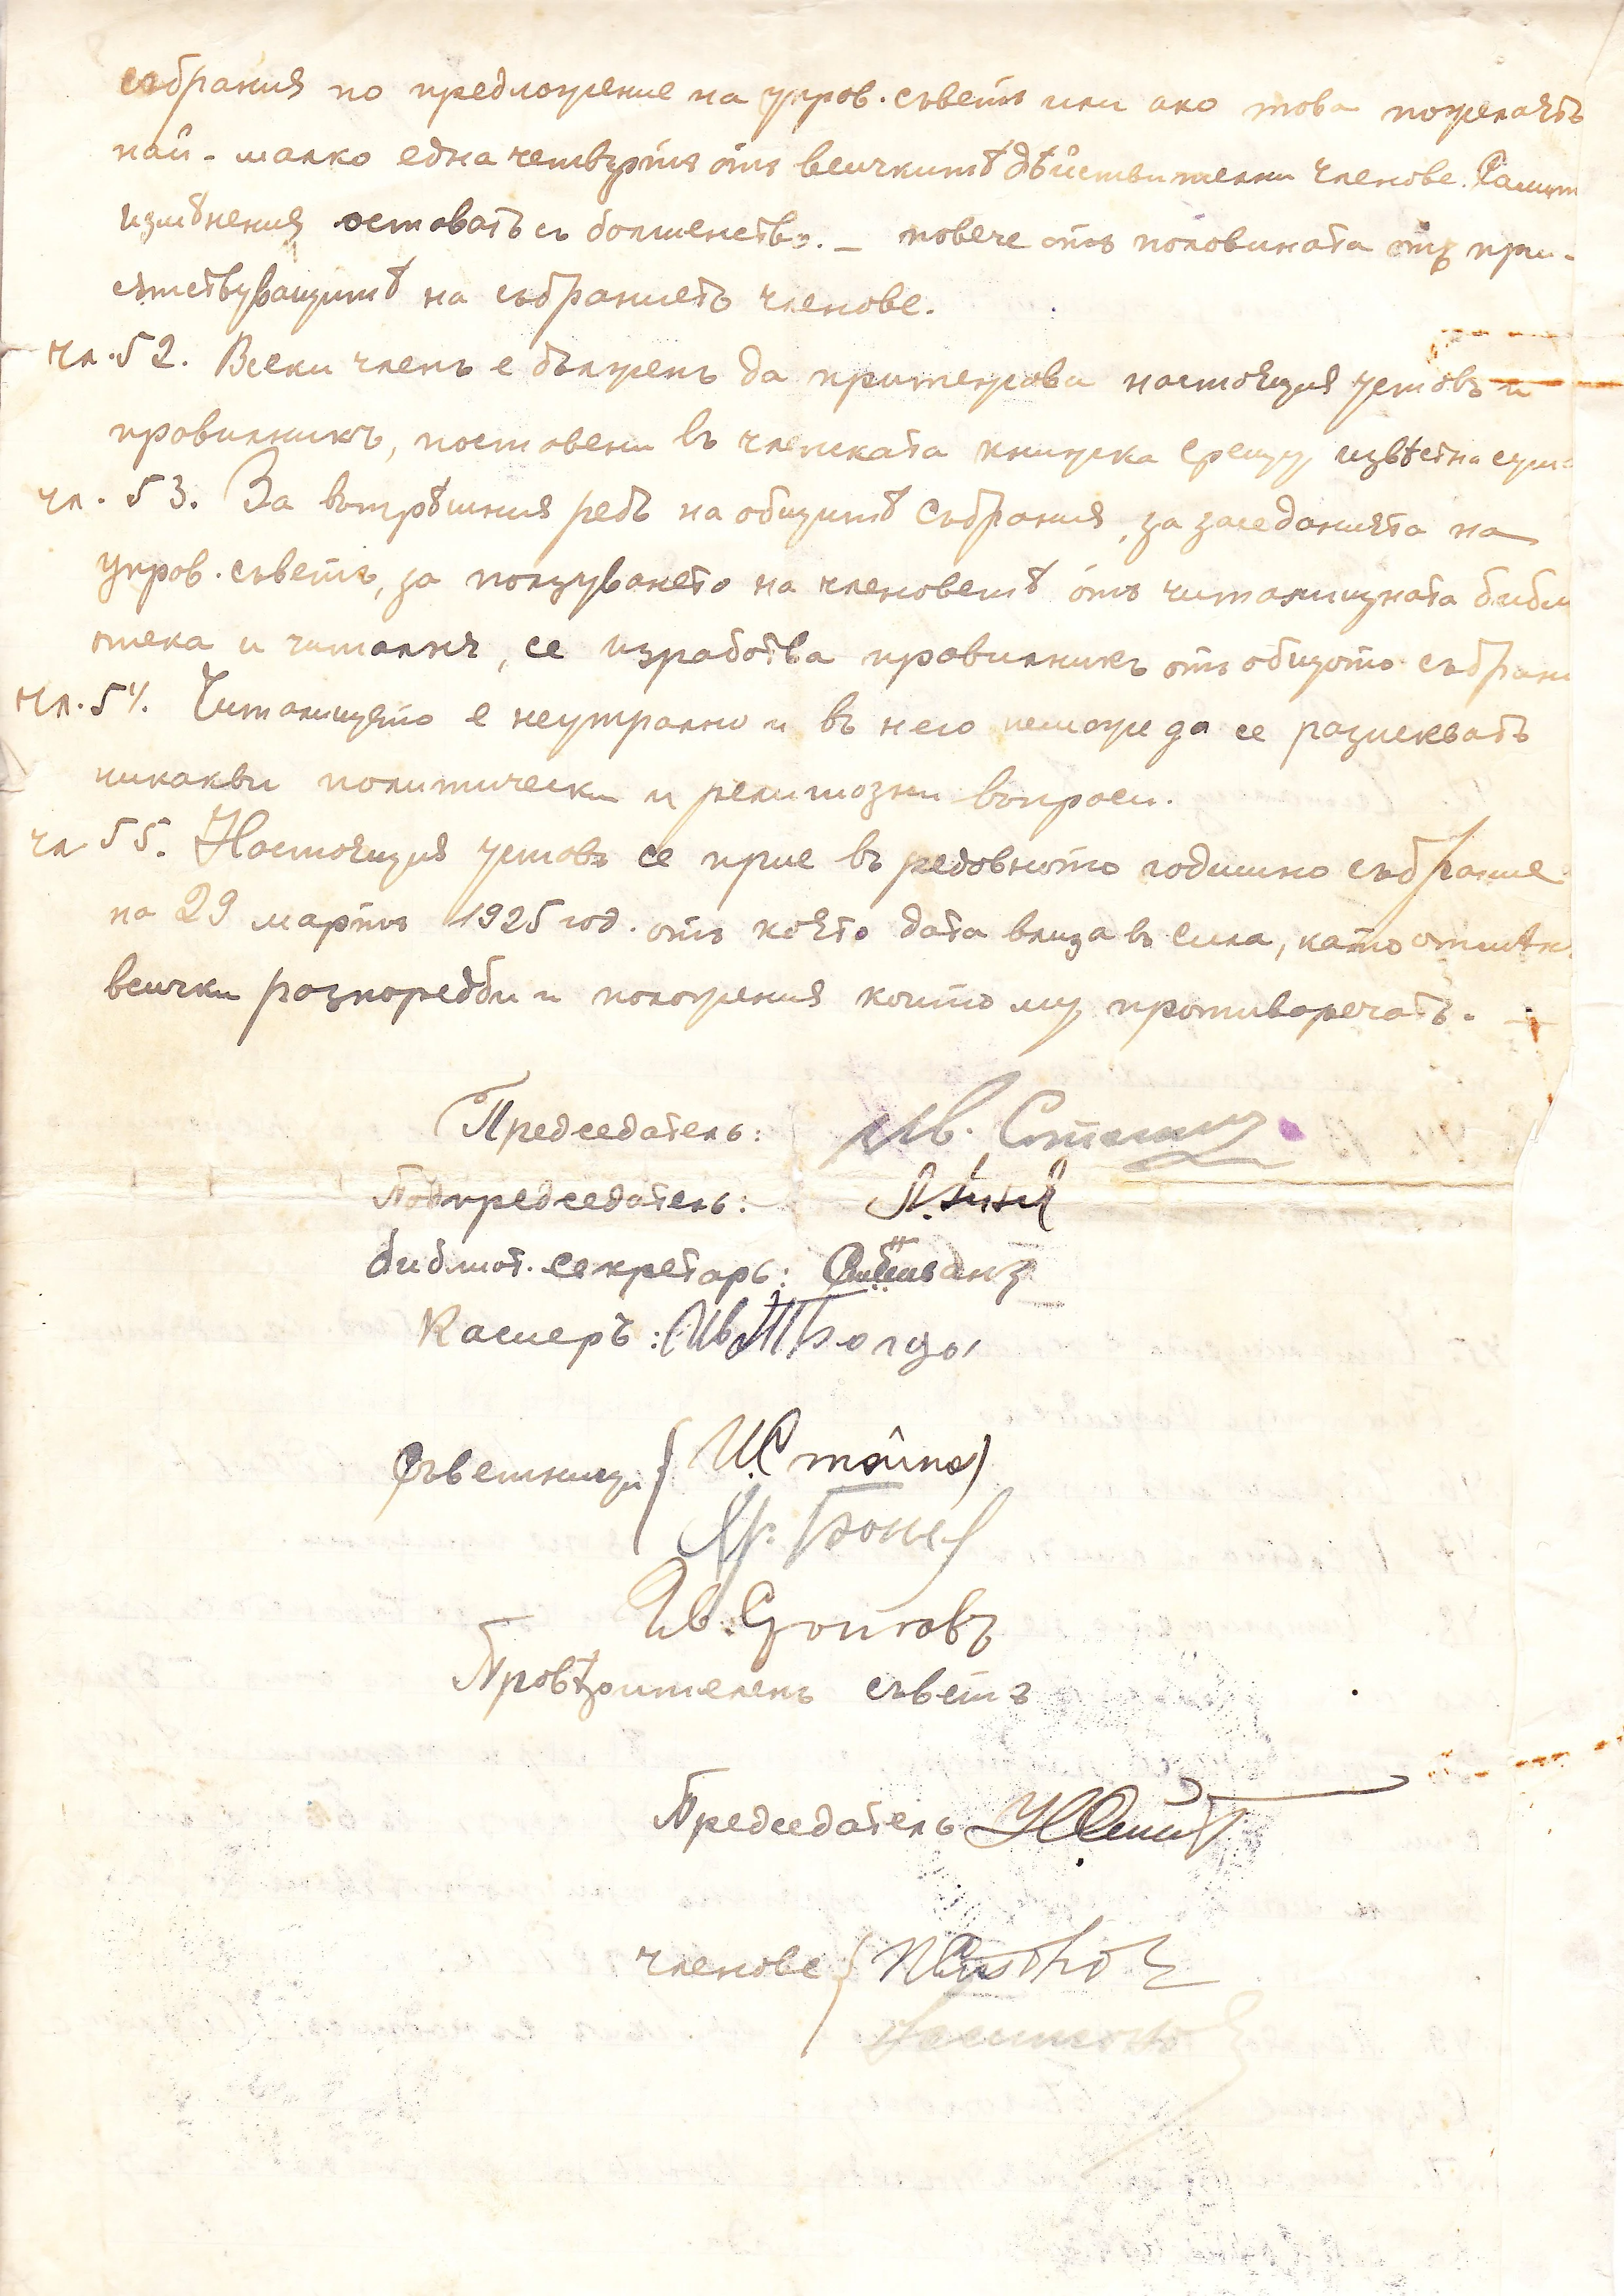 събрания по предложение на управ. съветъ или ако това пожелаятъ
най-малко една четвърть отъ всичкитѣ дѣйствителни членове.
измѣнения оставатъ съ болшенство. – повече отъ половината отъ при-
сѫтствуващитѣ на събранието членове.
чл. 52. Всеки членъ е длъженъ да притежава настоящия уставъ и
правилникъ, поставени въ членската книжка срещу извѣстна сума
чл. 53. За вѫтрѣшния редъ на общитѣ събрания, за заседанията на
управ. съветъ, за ползуването на членоветѣ отъ читалищната библи
отека и читалня, се изработва правилникъ отъ общото събрани
чл. 54. Читалището е неутрално и въ него неможе да се разискватъ
никакви политически и религиозни въпроси.
чл. 55. Настоящия уставъ се прие въ редовното годишно събрание
на 29 мартъ 1925 год. отъ която дата влиза въ сила, като отмѣн
всички разпоредби и положения които му противоречатъ.
Председатель: Ив.
Подпредседатель:
Библиот. секретарь:
Касиеръ: Ив
Съветници { И. Стайно
Хр. Бонев
Ив.
Провѣрителенъ съветъ
Председатель
членове {